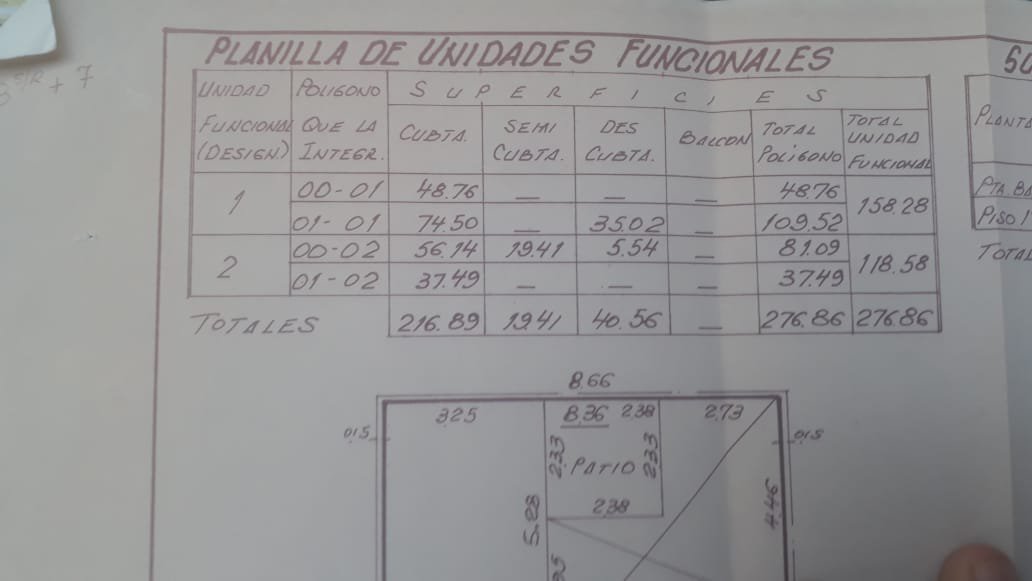 PLANILLA DE UNIDADES FUNCIONALES
UNIDAD FUNCIONAL (DESIGN.)
POLIGONO QUE LA INTEGR.
SUPERFICIES
CUBTA.
SEMI CUBTA.
DES CUBTA.
BALCON
TOTAL POLIGONO
TOTAL UNIDAD FUNCIONAL
1
00-01 48.76 — — — 48.76
158.28
01-01 74.50 — 35.02 — 109.52
2
00-02 56.14 19.41 5.54 — 81.09
118.58
01-02 37.49 — — — 37.49
TOTALES 216.89 19.41 40.56 — 276.86 276.86
SU
PLANTA
PTA. BA
PISO 1
TOTAL
+ 7
8.66
3.25 8.36 2.38 2.73
0.15 0.15
2.33 PATIO 2.33
2.38
5.28
4.46